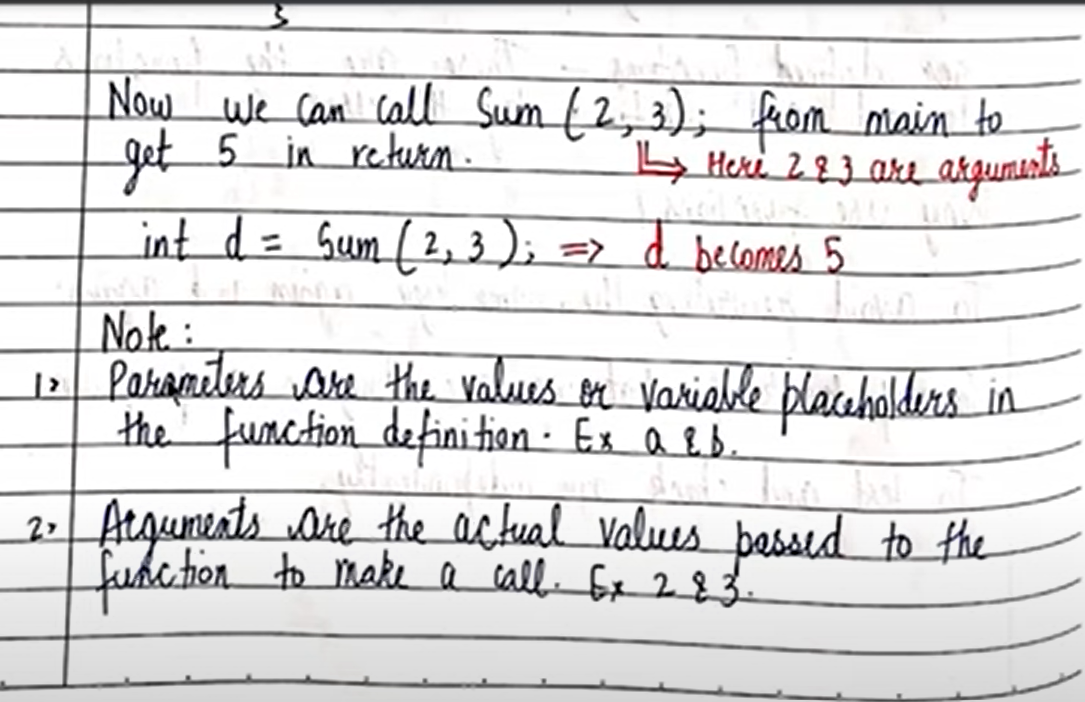 Now we can call Sum (2, 3); from main to
get 5 in return. => Here 2 & 3 are arguments
int d = Sum (2, 3); => d becomes 5
Note:
1> Parameters are the values or variable placeholders in
the function definition. Ex a & b.
2> Arguments are the actual values passed to the
function to make a call. Ex 2 & 3.